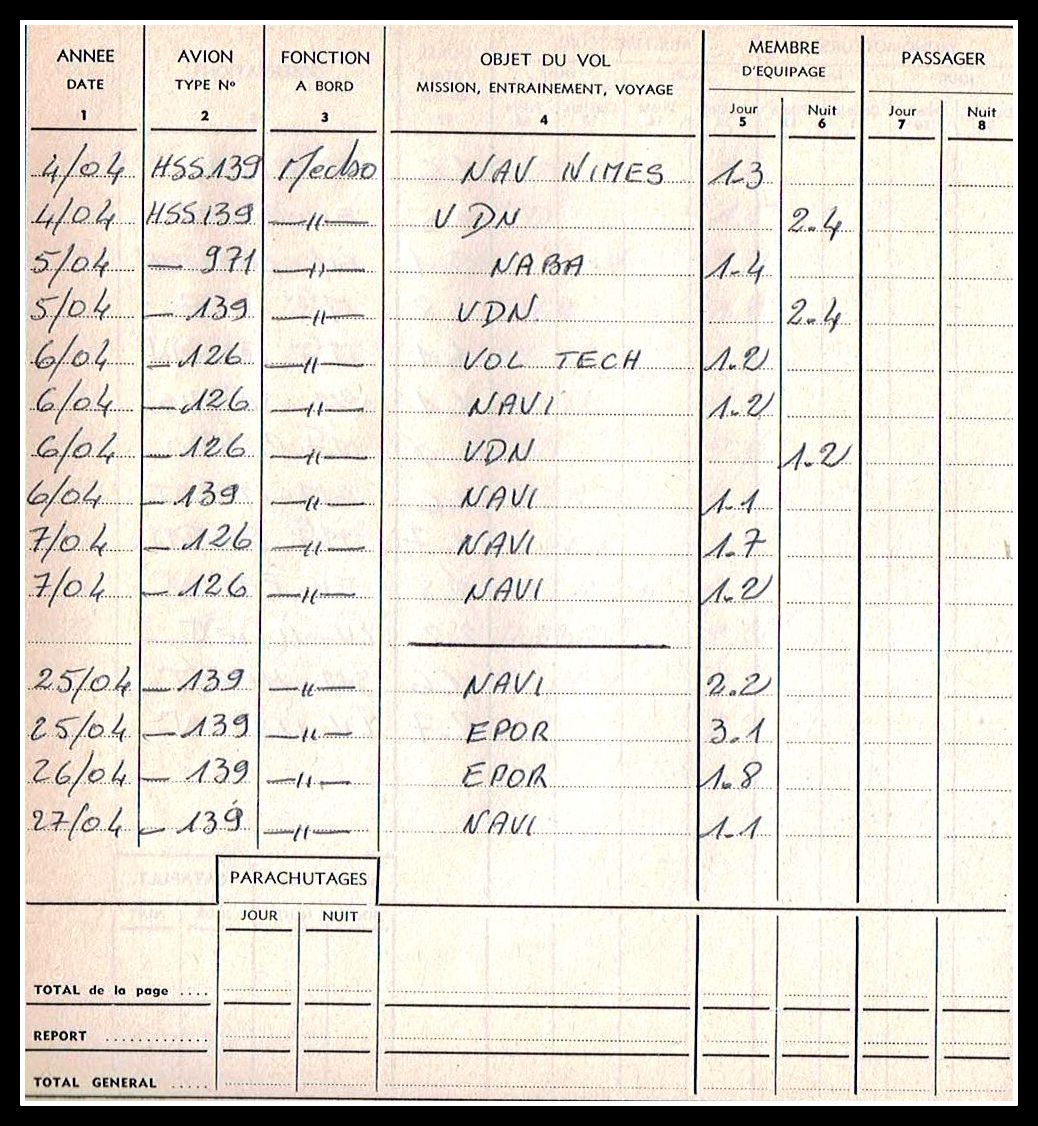 ANNEE AVION FONCTION OBJET DU VOL MEMBRE PASSAGER
DATE TYPE Nº A BORD MISSION, ENTRAINEMENT, VOYAGE D'EQUIPAGE
Jour Nuit Jour Nuit
1 2 3 4 5 6 7 8
4/04 HSS139 Mecbo NAV NIMES 1.3
4/04 HSS139 —"— VDN 2.4
5/04 — 971 —"— NABA 1.4
5/04 — 139 —"— VDN 2.4
6/04 — 126 —"— VOL TECH 1.2
6/04 — 126 —"— NAVI 1.2
6/04 — 126 —"— VDN 1.2
6/04 — 139 —"— NAVI 1.1
7/04 — 126 —"— NAVI 1.7
7/04 — 126 —"— NAVI 1.2
25/04 — 139 —"— NAVI 2.2
25/04 — 139 —"— EPOR 3.1
26/04 — 139 —"— EPOR 1.8
27/04 — 139 —"— NAVI 1.1
PARACHUTAGES
JOUR NUIT
TOTAL de la page ....
REPORT ............
TOTAL GENERAL .....